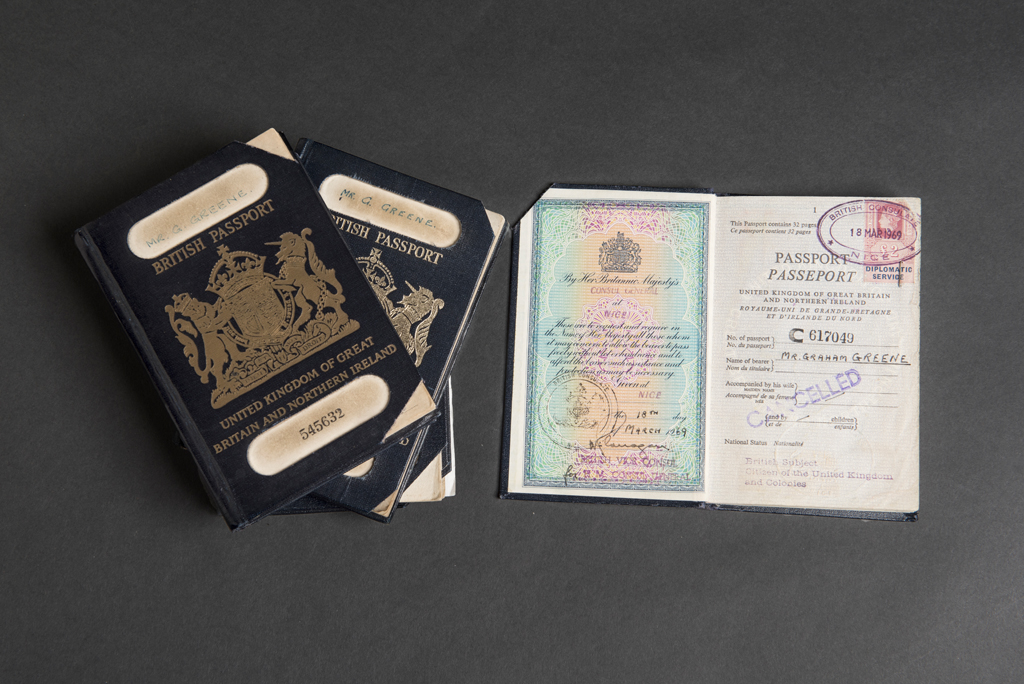 MR. G. GREENE.
BRITISH PASSPORT
UNITED KINGDOM OF GREAT
BRITAIN AND NORTHERN IRELAND
545632
MR. G. GREENE.
BRITISH PASSPORT
By Her Britannic Majesty's
CONSUL GENERAL
at
NICE
These are to request and require in
the Name of Her Majesty all those whom
it may concern to allow the bearer to pass
freely without let or hindrance, and to
afford the bearer such assistance and
protection as may be necessary.
Given at
NICE
18TH day
of MARCH 1969
BRITISH VICE CONSUL
for H.M. CONSUL GENERAL
1
This Passport contains 32 pages
Ce passeport contient 32 pages
BRITISH CONSULATE
18 MAR 1969
NICE
DIPLOMATIC
SERVICE
PASSPORT
PASSEPORT
UNITED KINGDOM OF GREAT BRITAIN
AND NORTHERN IRELAND
ROYAUME-UNI DE GRANDE-BRETAGNE
ET D'IRLANDE DU NORD
No. of passport C 617049
No. du passeport
Name of bearer MR. GRAHAM GREENE
Nom du titulaire
Accompanied by his wife
MAIDEN NAME
Accompagné de sa femme
NÉE
CANCELLED
and by children
et de enfants
National Status Nationalité
British Subject
Citizen of the United Kingdom
and Colonies